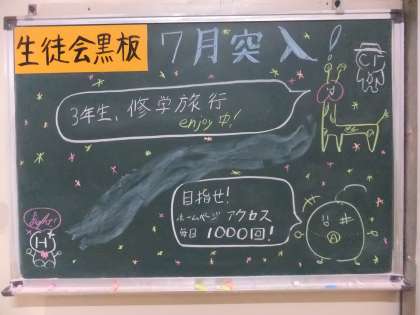 生徒会黒板
7月突入!
3年生、修学旅行
enjoy中!
目指せ!
ホームページ アクセス
毎日 1000回!
H
A